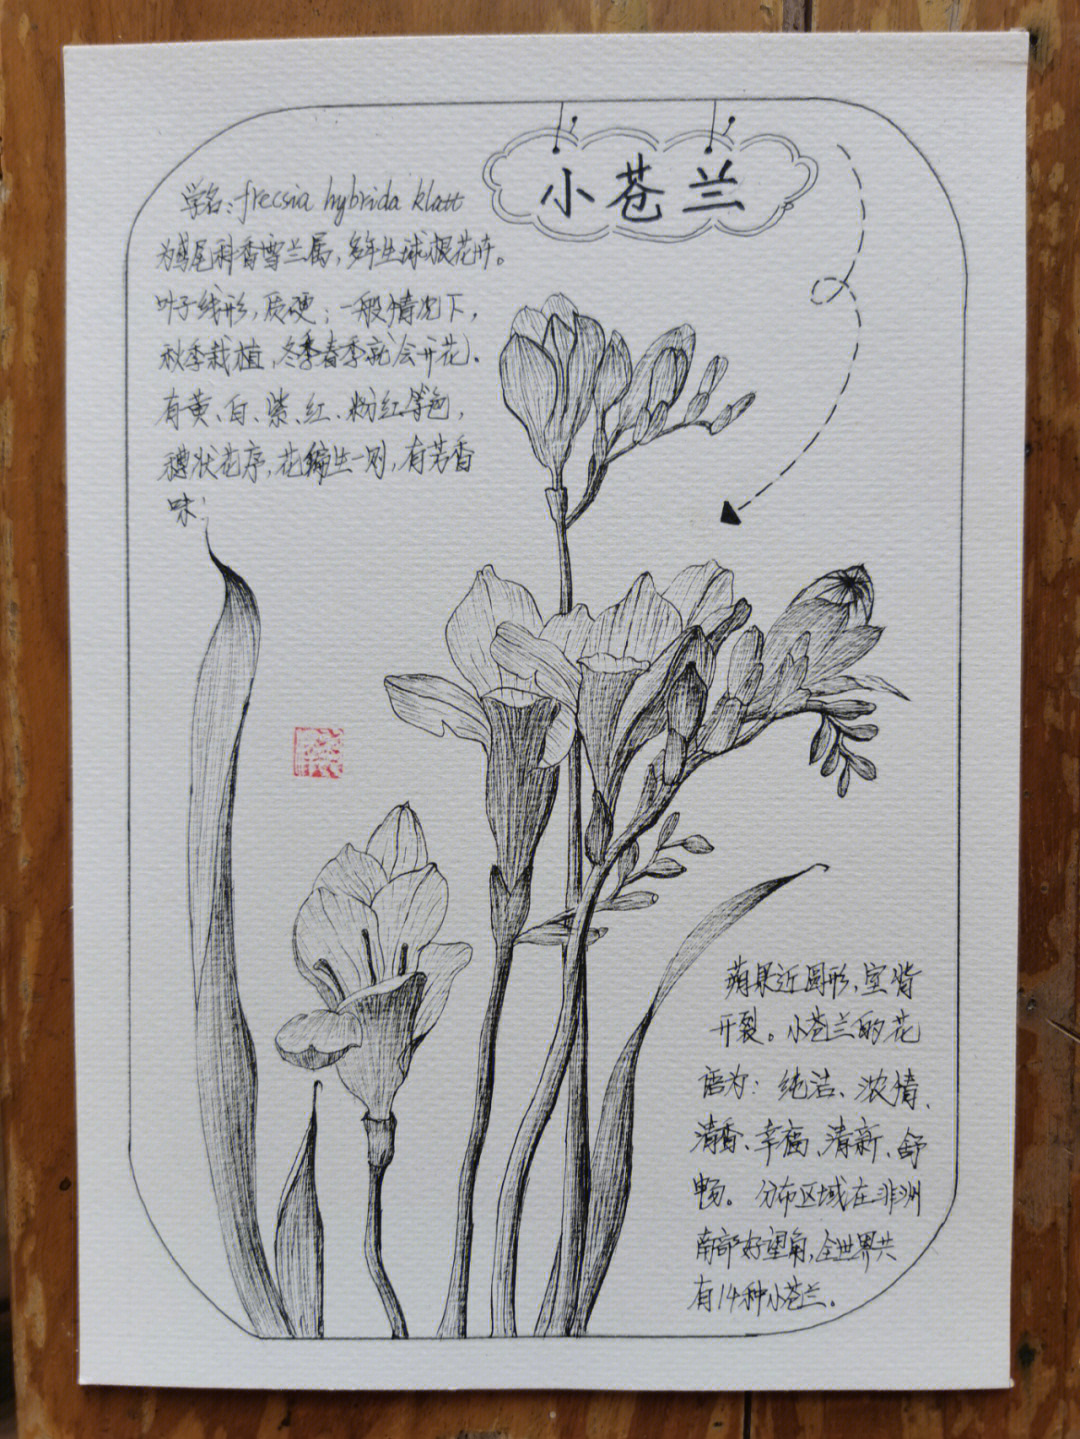 小苍兰
学名：frecsia hybrida klatt
为鸢尾科香雪兰属，多年生球根花卉。
叶子线形，质硬；一般情况下，
秋季栽植，冬季春季就会开花、
有黄、白、紫、红、粉红等色，
穗状花序，花偏生一则，有芳香
味；
蒴果近圆形，室背
开裂。小苍兰的花
语为：纯洁、浓情、
清香、幸福、清新、舒
畅。分布区域在非洲
南部好望角，全世界共
有14种小苍兰。